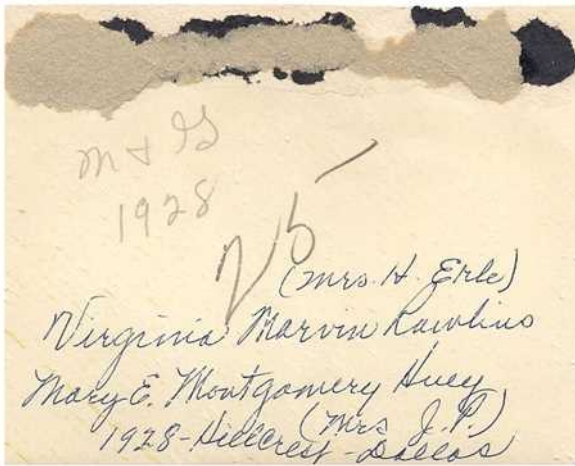 M & G
1928
25
(Mrs. H. Erle)
Virginia Marvin Rawlins
Mary E. Montgomery Huey
(Mrs J. P.)
1928-Hillcrest-Dallas